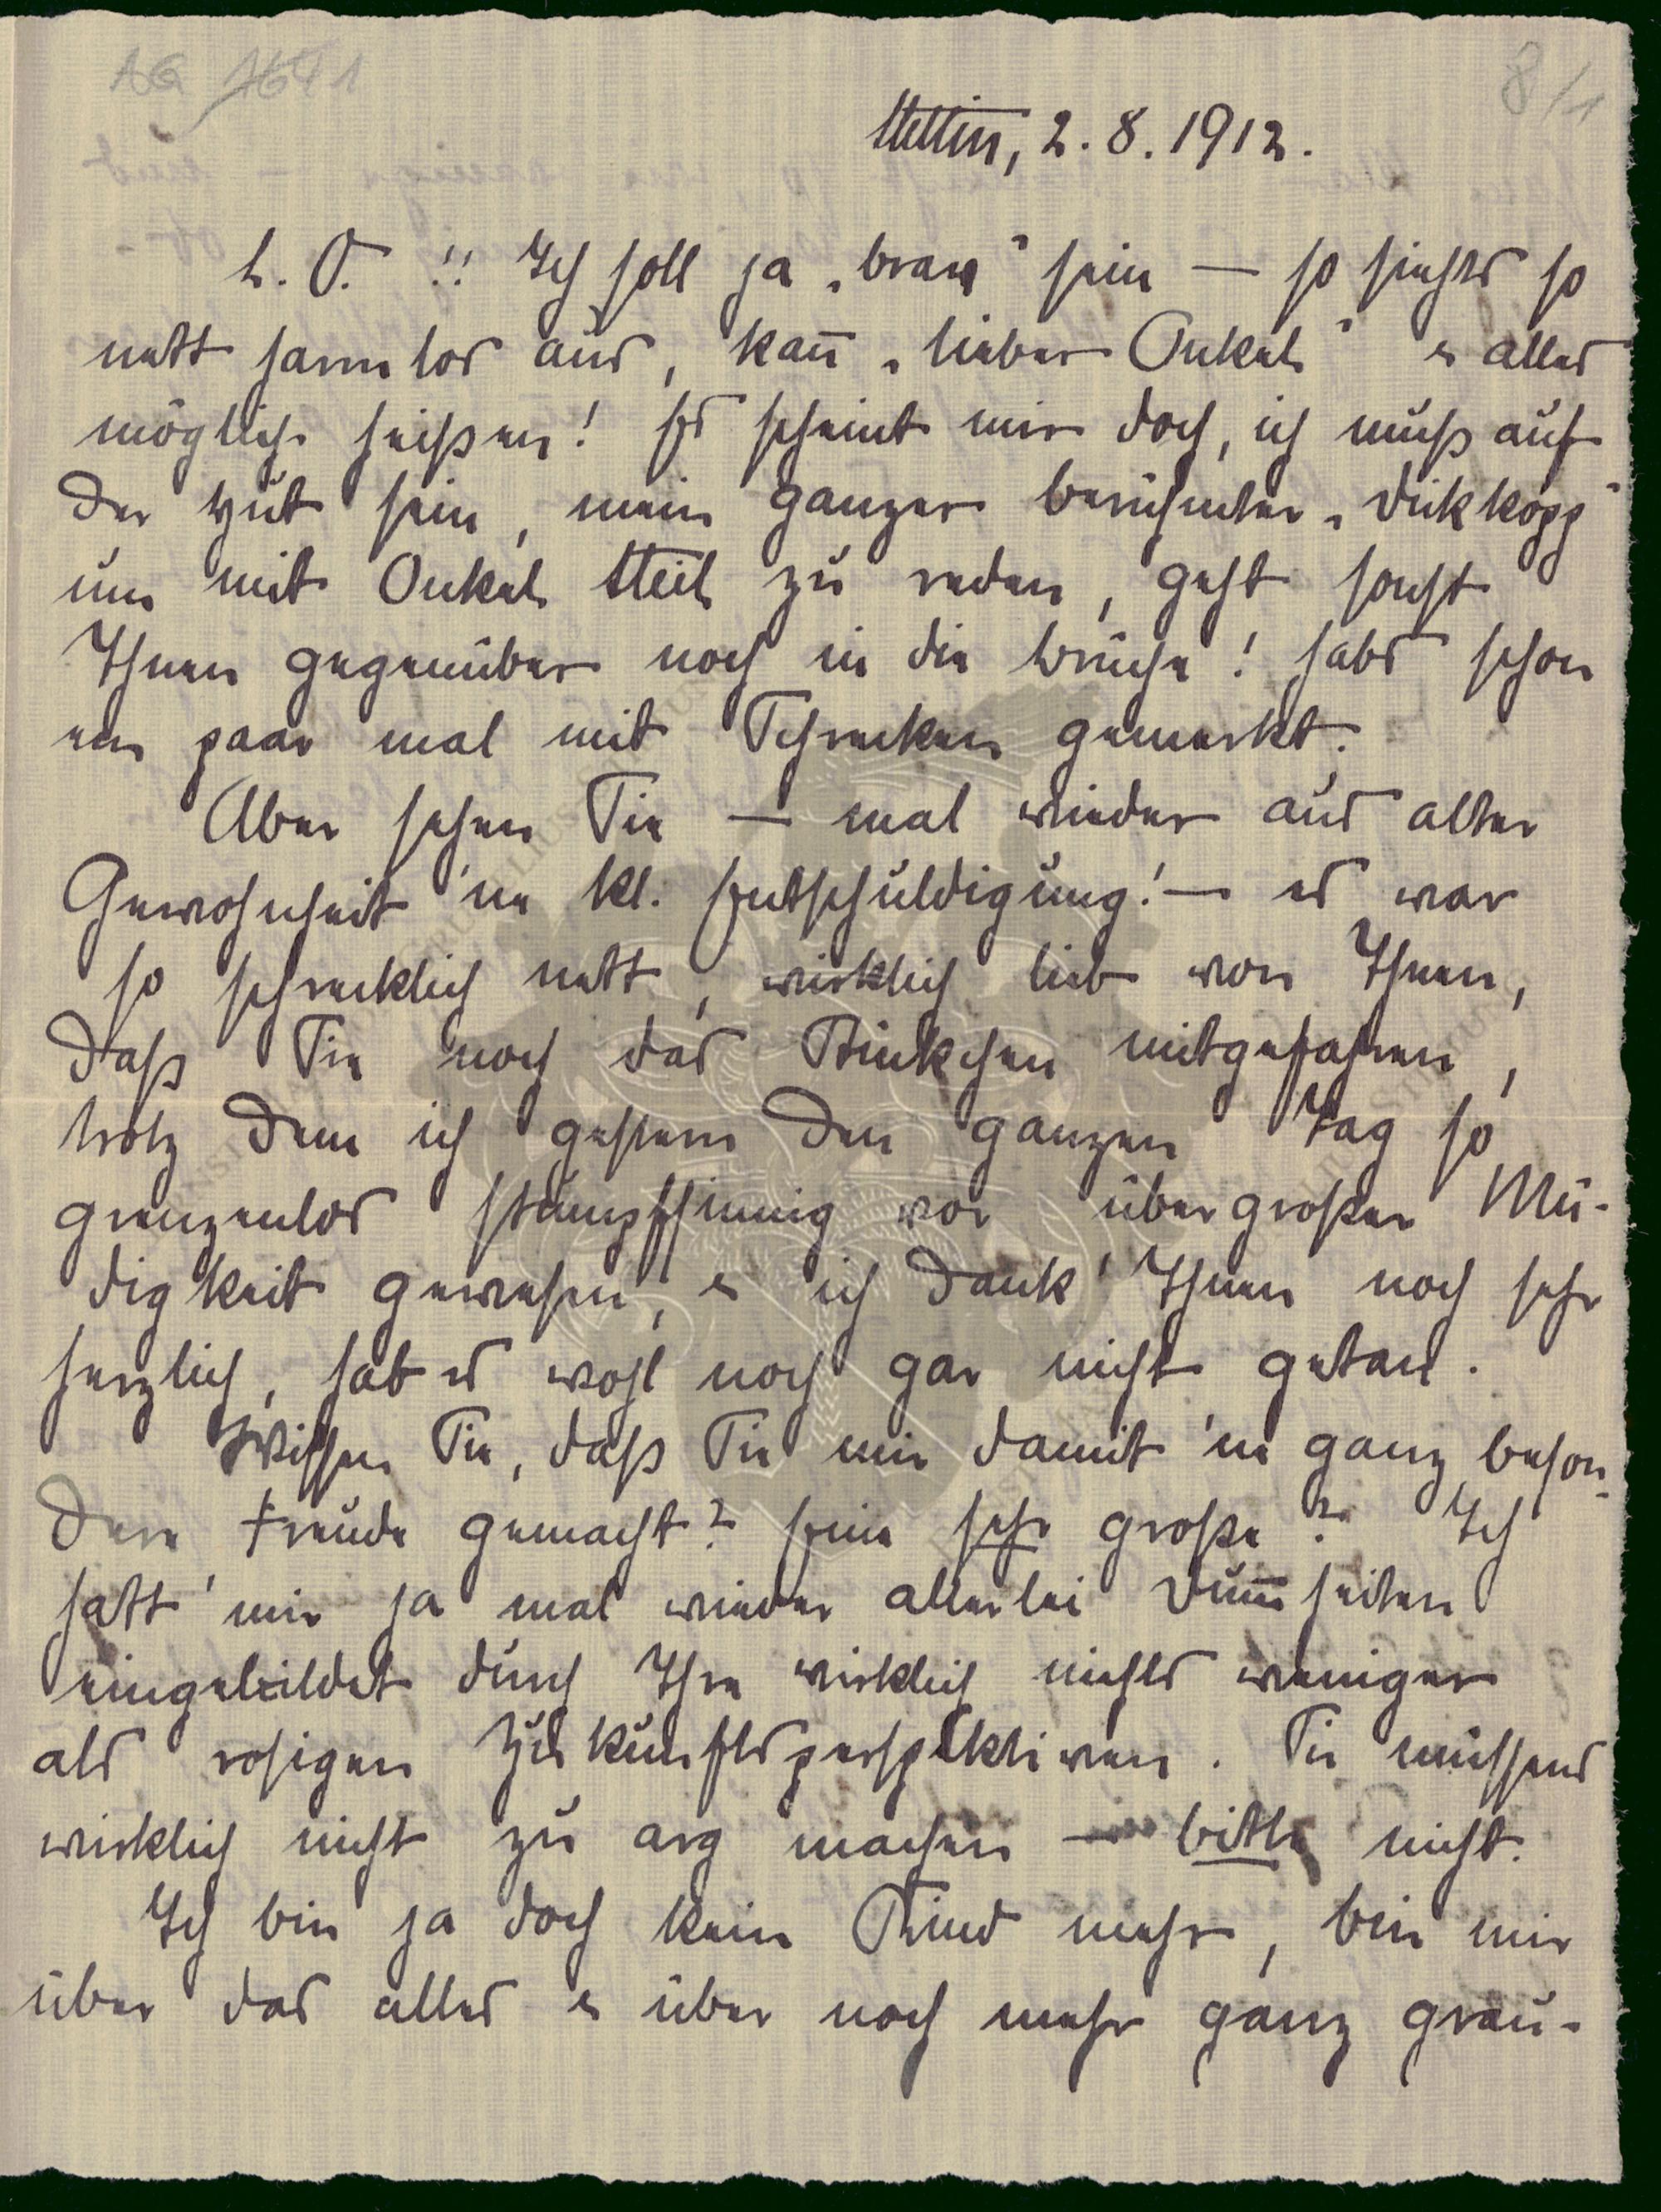 AG 1641
8/1
Stettin, 2.8.1912.
L. O. !! Ich soll ja „brav" sein — so siehts so
nett harmlos aus, kan̄ „lieber Onkel" & alles
möglich heißen! Es scheint mir doch, ich muß auf
der Hut sein, mein ganzer berühmter „Dickkopp"
um mit Onkel Steil zu reden, geht sonst
Ihnen gegenüber noch in die Brüche! Habs schon
ein paar mal mit Schrecken gemerkt.
Aber sehen Sie — mal wieder aus alter
Gewohnheit 'ne kl. Entschuldigung! — es war
so schrecklich nett, wirklich lieb von Ihnen,
daß Sie noch das Stückchen mitgefahren,
trotz dem ich gestern den ganzen Tag so
grenzenlos stumpfsinnig vor übergroßer Mü-
digkeit gewesen, & ich dank' Ihnen noch sehr
herzlich, hab es wohl noch gar nicht getan.
Wissen Sie, daß Sie mir damit 'ne ganz beson-
dere Freude gemacht? Eine sehr große? Ich
hatt' mir ja mal wieder allerlei Dum̄heiten
eingebildet durch Ihre wirklich nichts weniger
als rosigen Zukunftsperspektiven. Sie müssens
wirklich nicht zu arg machen — bitte nicht.
Ich bin ja doch kein Kind mehr, bin mir
über das alles & über noch mehr ganz grau-